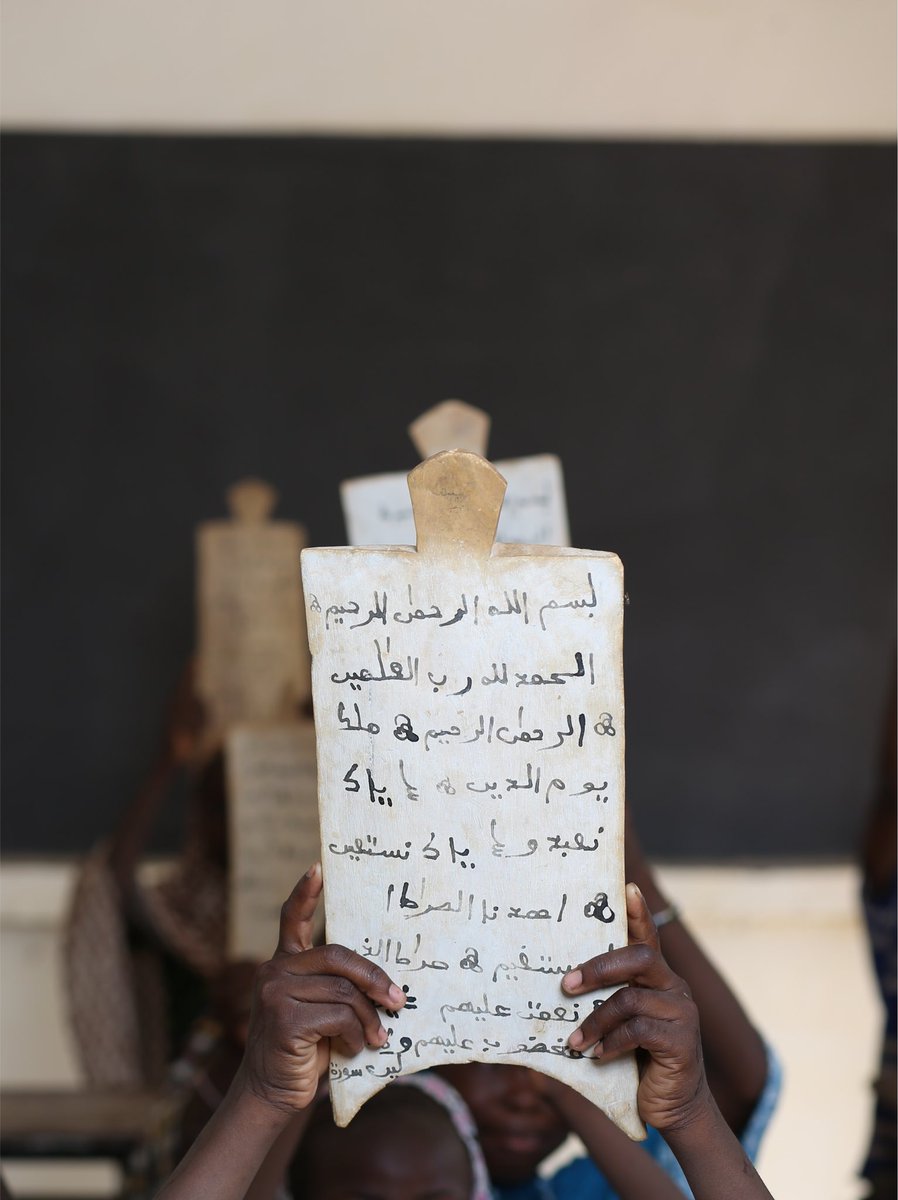 بسم الله الرحمن الرحيم
الحمد لله رب العلمين
الرحمن الرحيم ملك
يوم الدين إياك
نعبد وإياك نستعين
اهدنا الصراط ا
لمستقيم صراط الذ
نعمت عليهم
مغضوب عليهم و
سورة